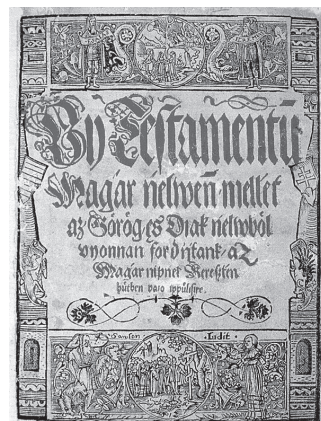 Vÿ Testamentū
Magar nelwen mellet
az Görög es Diak nelwböl
vyonnan fordijtank az
Magar nipnek Kereßten
hütben valo ippülisire.
Samson Iudit